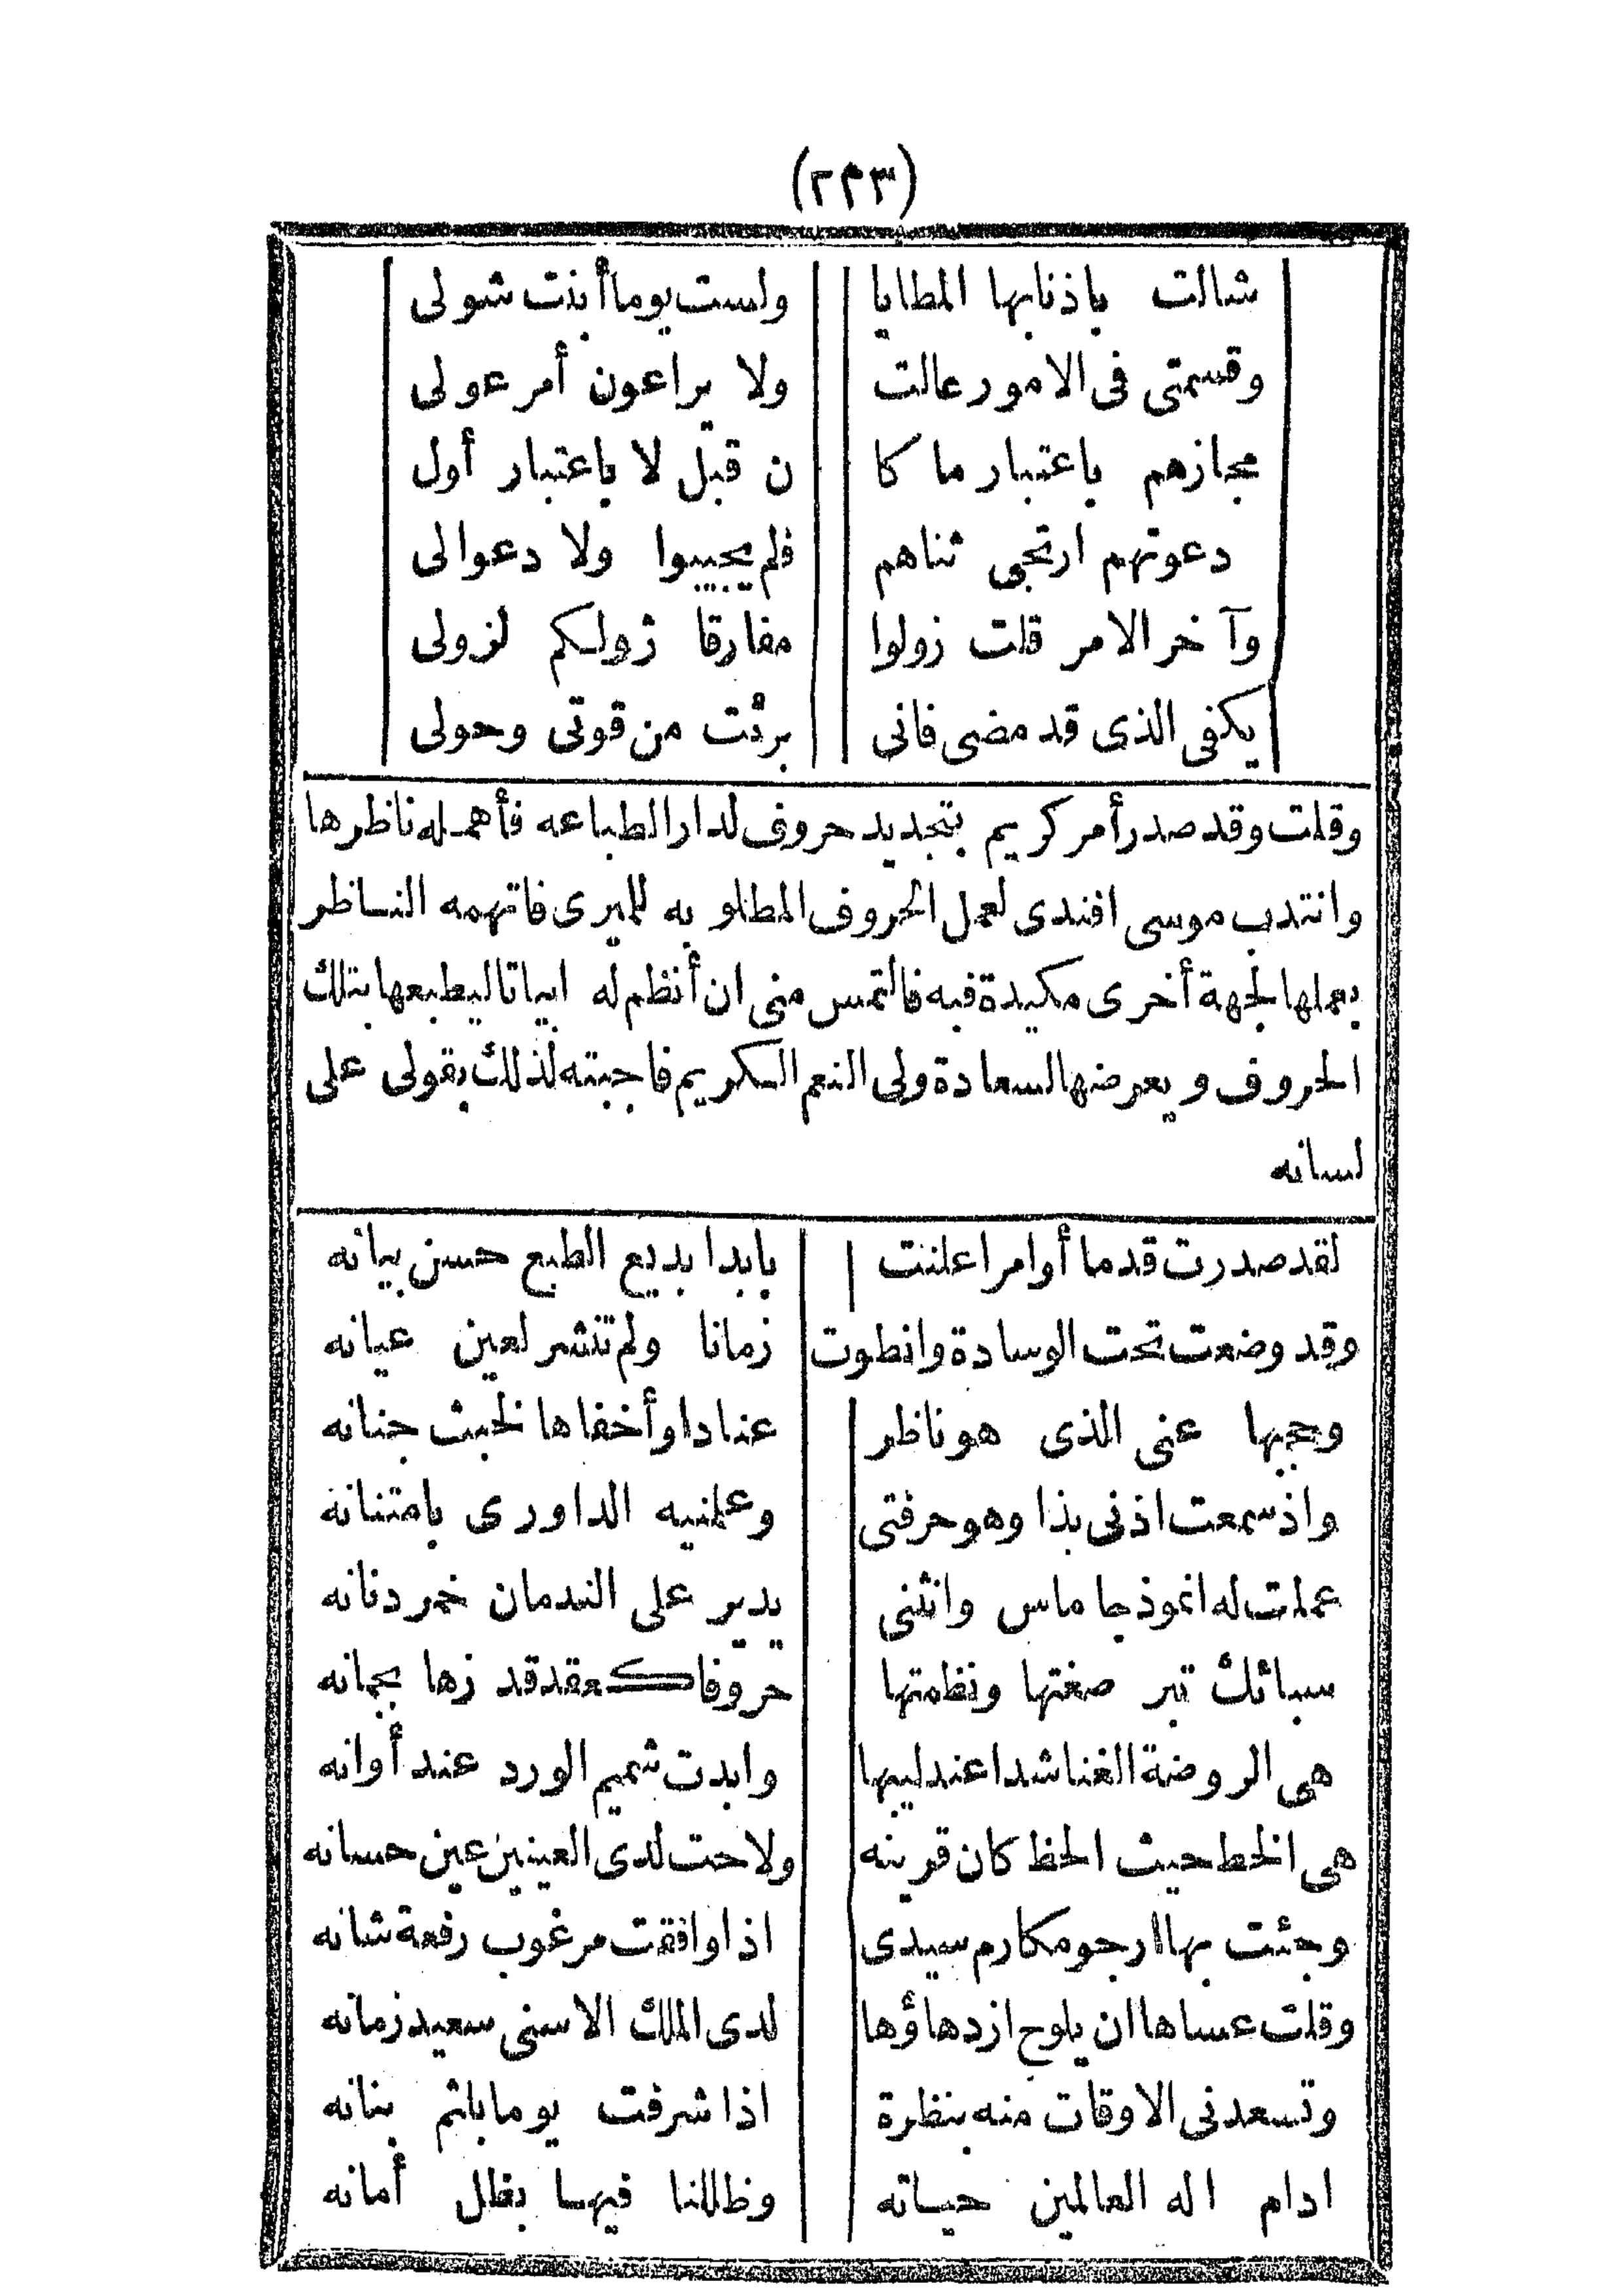 (٢٤٣)
شالت باذنابها المطايا ولست يوما أبذت شولى
وقسمتى فى الامور عالت ولا يراعون أمر عولى
مجازهم باعتبار ما كا ن قبل لا باعتبار أول
دعوتهم ارتجى ثناهم فلم يجيبوا ولا دعوا لى
وآخر الامر قلت زولوا مفارقا زولكم لزولى
يكفى الذى قد مضى فانى برئت من قوتى وحولى
وقلت وقد صدر أمر كريم بتجديد حروف لدار الطباعه فأهمله ناظرها
وانتدب موسى افندى لعمل الحروف المطلوبه للميرى فاتهمه الناظر
بعملها لجهة أخرى مكيدة فيه فالتمس منى ان أنظم له ابياتا ليطبعها بتلك
الحروف ويعرضها لسعادة ولى النعم الكريم فاجبته لذلك بقولى على
لسانه
لقد صدرت قدما أوامر اعلنت بابدا بديع الطبع حسن بيانه
وقد وضعت تحت الوسادة وانطوت زمانا ولم تنشر لعين عيانه
وحجبها عنى الذى هو ناظر عنادا وأخفاها لخبث جنانه
واذ سمعت اذنى بذا وهو حرفتى وعلمنيه الداورى بامتنانه
عملت له انموذجا ماس وانثنى يدير على الندمان خمر دنانه
سبائك تبر صغتها ونظمتها حروفا كعقد قد زها بجمانه
هى الروضة الغنا شدا عندليبها وابدت شميم الورد عند أوانه
هى الخط حيث الحظ كان قرينه ولاحت لدى العينين عين حسانه
وجئت بها ارجو مكارم سيدى اذا وافقت مرغوب رفعة شانه
وقلت عساها ان يلوح ازدهاؤها لدى الملك الاسنى سعيد زمانه
وتسعدنى الاوقات منه بنظرة اذا شرفت يوما بلثم بنانه
ادام اله العالمين حياته وظللنا فيها بظل أمانه